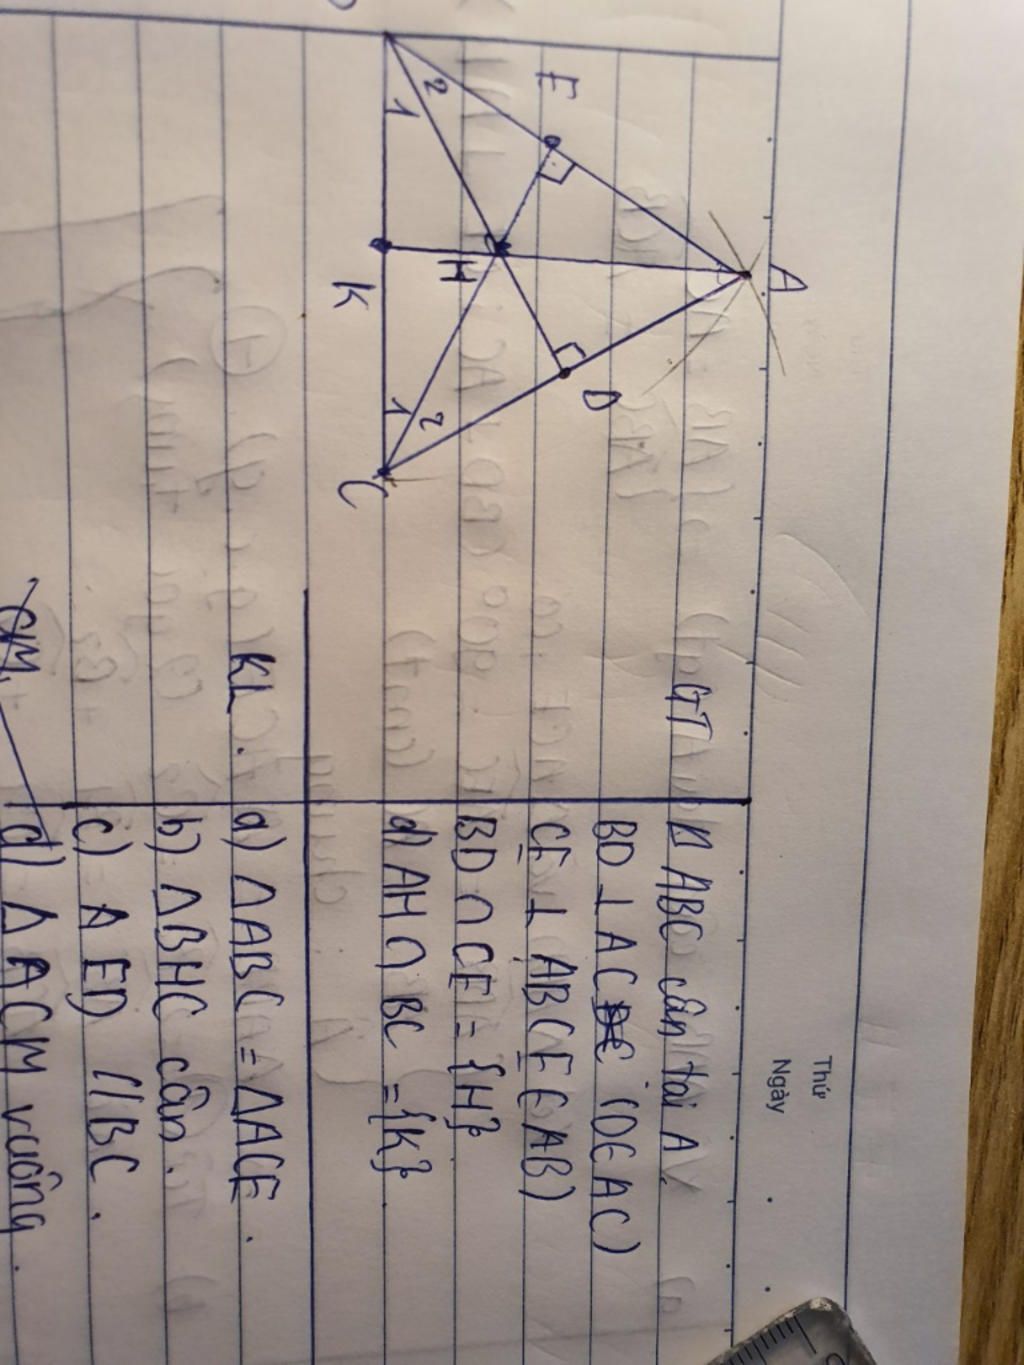 Thứ
Ngày
A
E
2
1
D
H
K
1
2
C
GT
Δ ABC cân tại A
BD ⊥ AC (D ∈ AC)
CE ⊥ AB (E ∈ AB)
BD ∩ CE = {H}
d) AH ∩ BC = {K}
KL
a) ΔABC = ΔACE.
b) ΔBHC cân.
c) ED // BC.
d) Δ ACM vuông.
CM